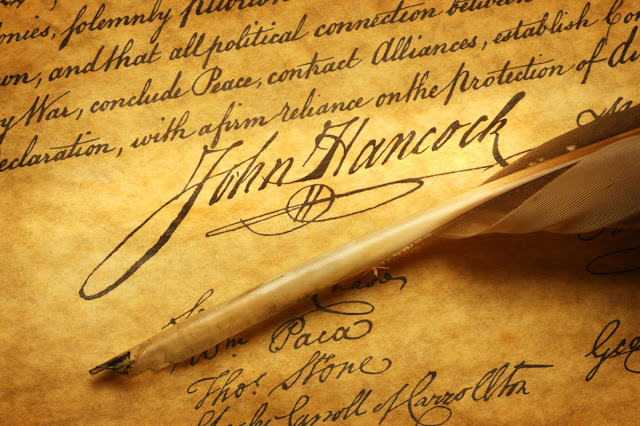 onies, solemnly
wn, and that all political connection between
y War, conclude Peace, contract Alliances, establish Co
eclaration, with a firm reliance on the Protection of di
John Hancock
H
Wm. Paca
Thos. Stone
Carroll of Carrollton
Geo